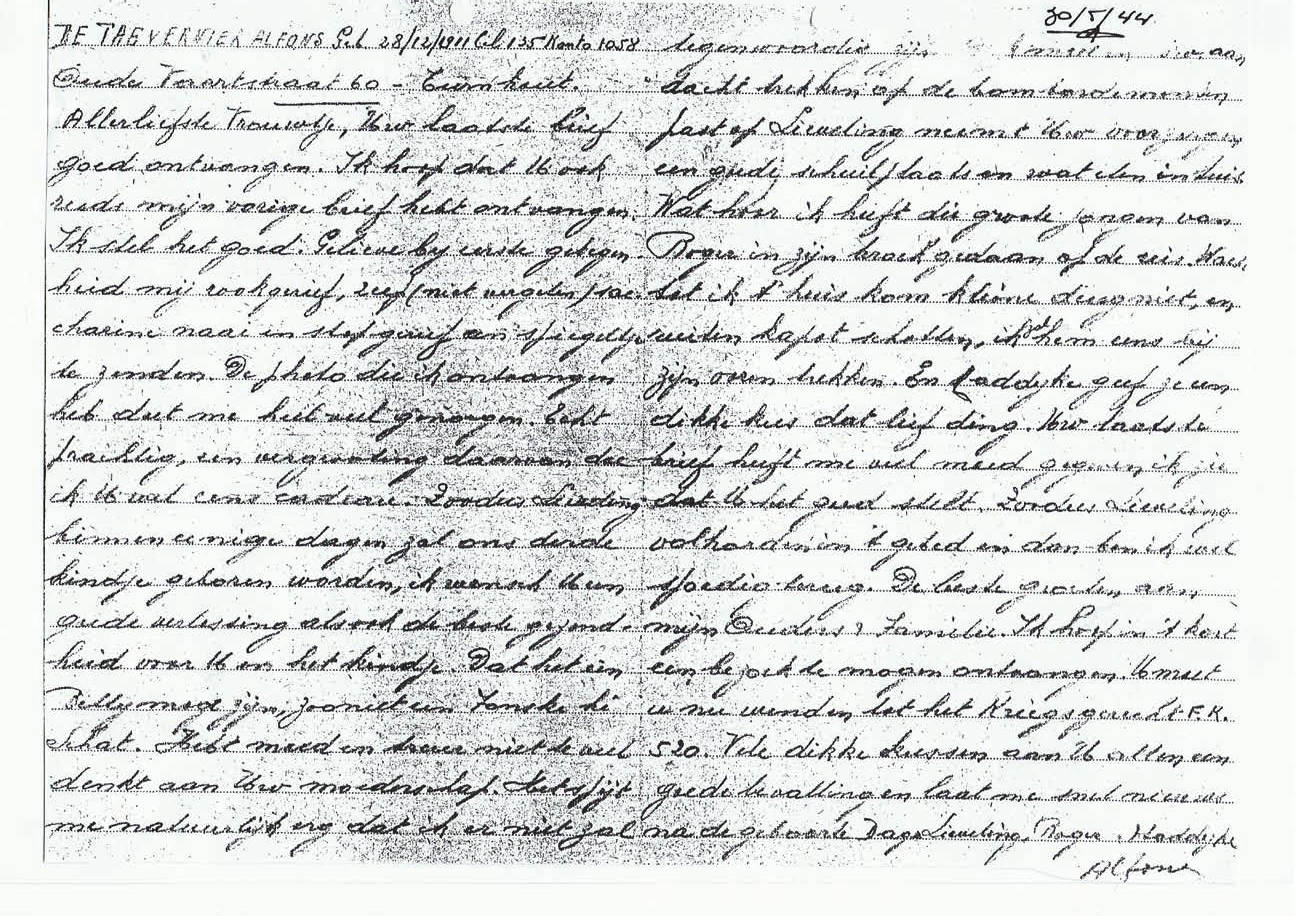 30/5/44
DE TAEVERNIER ALFONS Geb 28/12/1911 Cel 135 Konto 1058
Oude Vaartstraat 60 - Turnhout.
Allerliefste Vrouwtje, Uw laatste brief
goed ontvangen. Ik hoop dat U ook
reeds mijn vorige brief hebt ontvangen.
Ik stel het goed. Gelieve by eerste gelegen
heid mij rookgerief, zeep (niet vergeten) sac
charine naai en stopgerief en spiegeltje
te zenden. De photo die ik ontvangen
heb doet me heel veel genoegen. Echt
prachtig, een vergrooting daarvan doe
ik U wel eens cadeau. Zoodus Lieveling
binnen eenige dagen zal ons derde
kindje geboren worden, ik wensch U een
goede verlossing alsook de beste gezond
heid voor U en het kindje. Dat het een
Betty mag zijn, zooniet een Fonske hé
Schat. Hebt moed en treur niet te veel
denkt aan Uw moederschap. Het spijt
me natuurlijk erg dat ik er niet zal
tegenwoordig zijn U moet aan
dacht trekken op de bombardementen
past op Lieveling neemt Uw voorzorgen
een goede schuilplaats en wat eten in huis
Wat hoor ik heeft die groote jongen van
Roger in zijn broek gedaan op de reis. Waci
tot ik t'huis kom kleine deugniet, en
ruiten kapot schotten, ik zal hem eens bij
zijn ooren trekken. En Maddyke geef je een
dikke kus dat lief ding. Uw laatste
brief heeft me veel moed gegeven ik zie
dat U het goed stelt. Zoodus Lieveling
volharden in 't gebed en dan ben ik wel
spoedig terug. De beste groeten aan
mijn Ouders & Familie. Ik hoop in 't kort
een bezoek te mogen ontvangen. U moet
u nu wenden tot het Kriegsgericht F.K.
520. Vele dikke kussen aan U allen een
goede bevalling en laat me snel nieuws
na de geboorte Dag Lieveling, Roger, Maddijke
Alfons